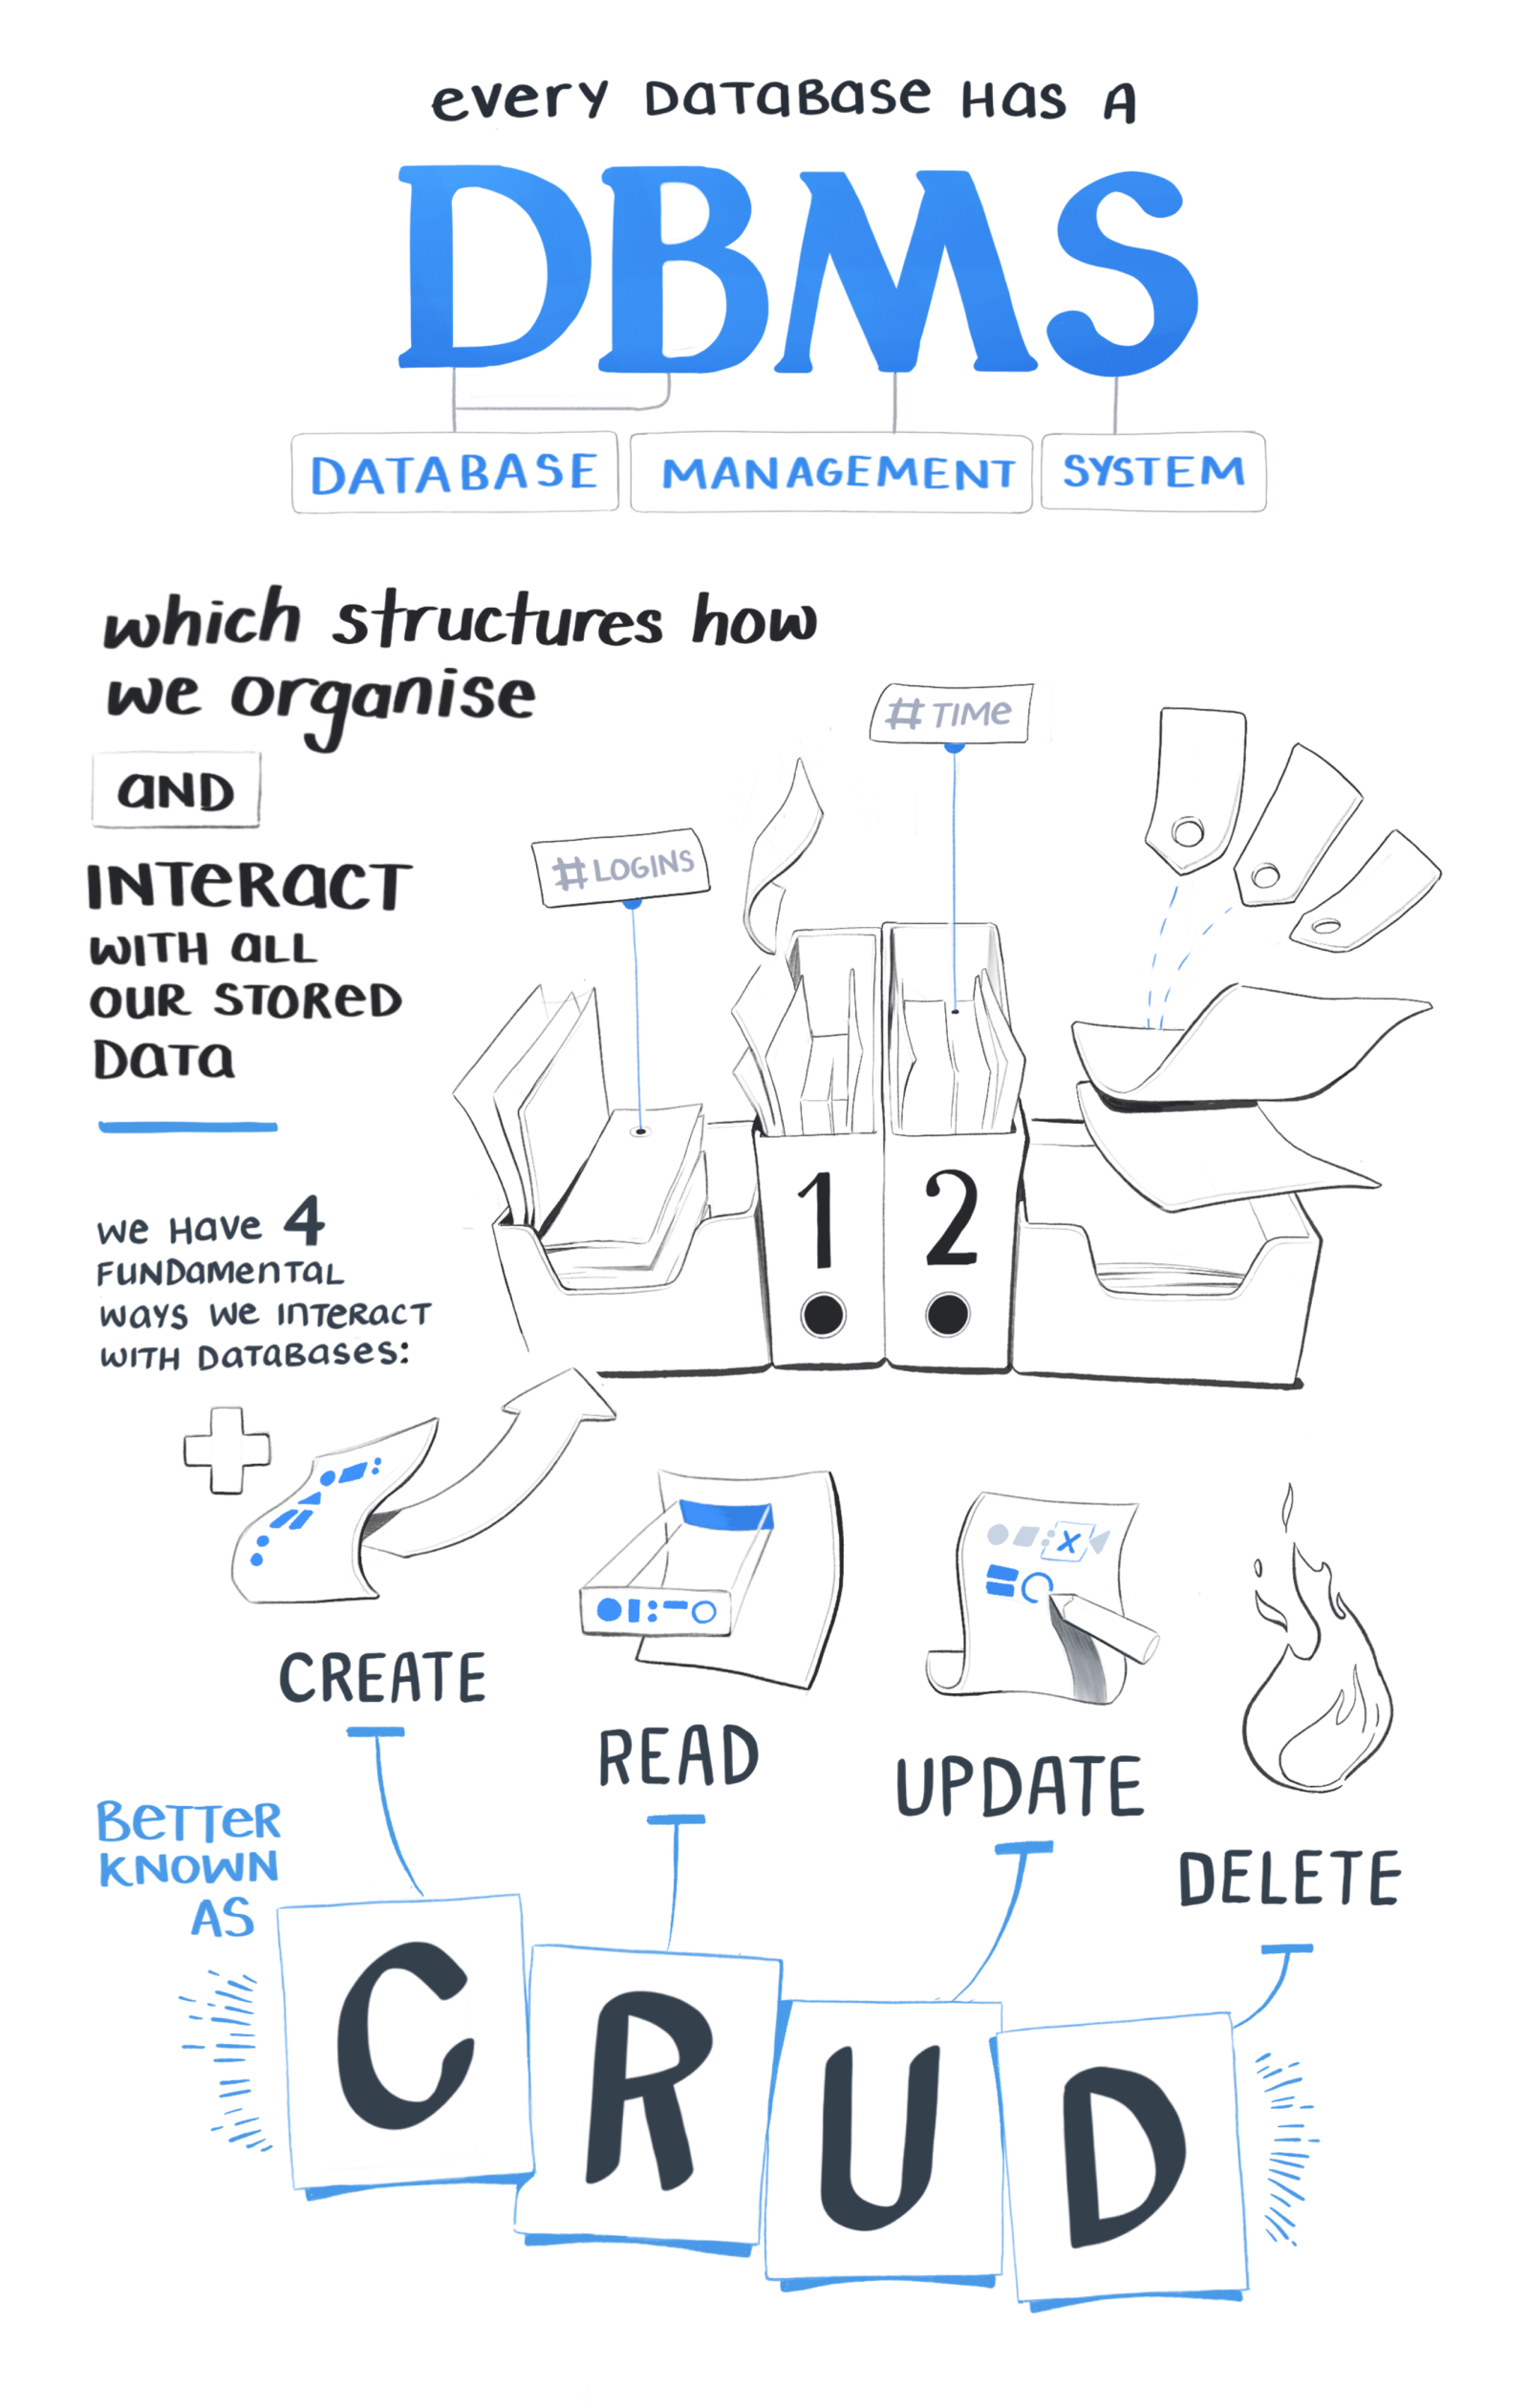 every DataBase Has A
DBMS
DATABASE MANAGEMENT SYSTEM
which structures how
we organise
AND
INTeRacT
WITH aLL
OUR STOReD
DaTa
#TIMe
#LOGINS
1 2
We Have 4
FUNDamenTaL
ways we INTeRacT
WITH DaTaBases:
CREATE
READ
UPDATE
DELETE
BeTTeR
KNOWN
AS
C R U D